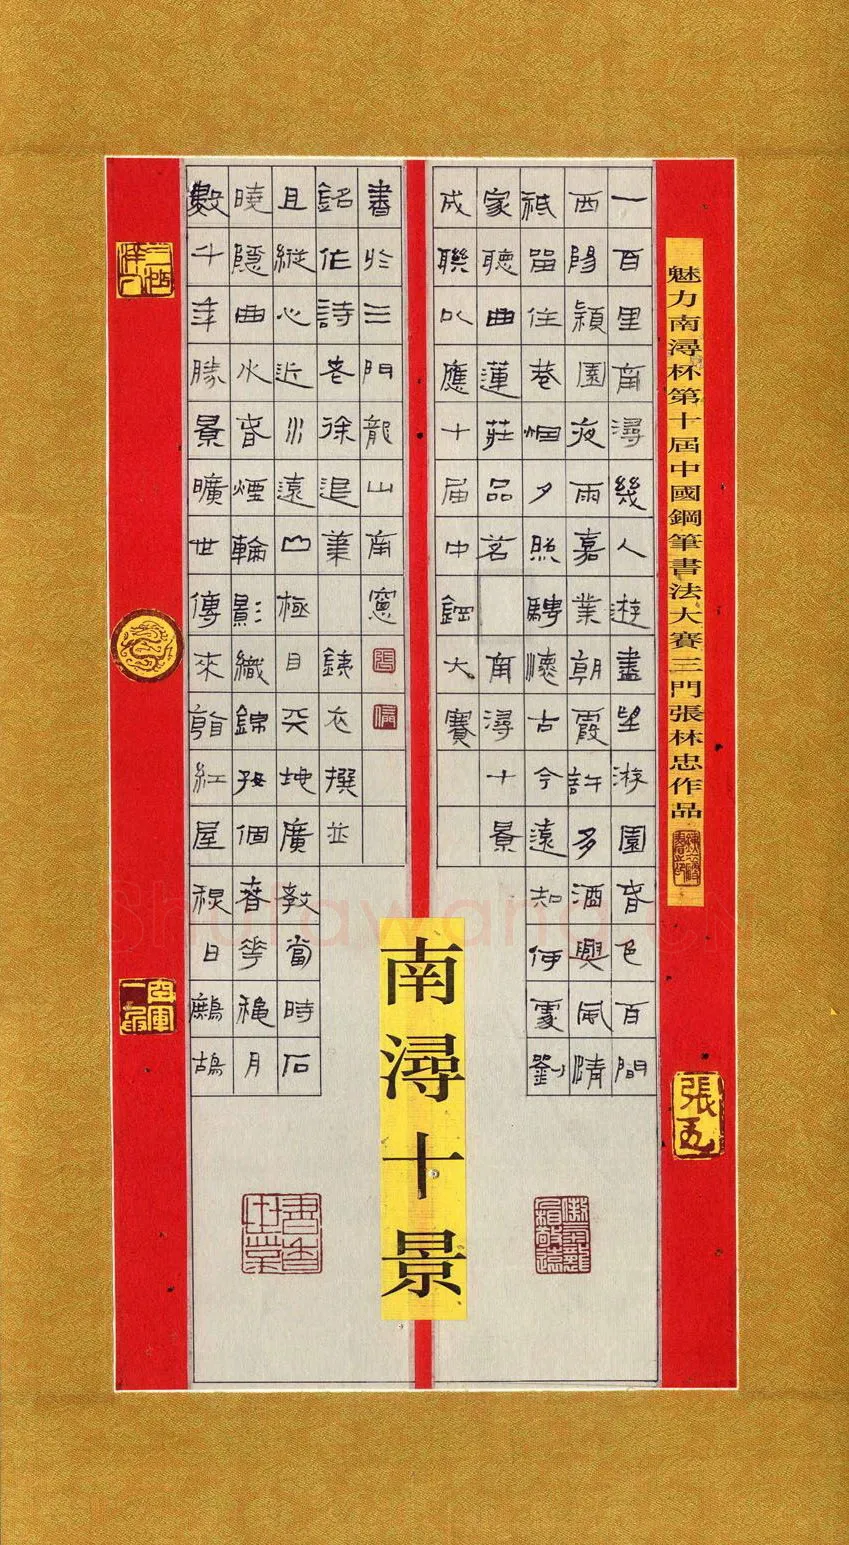 魅力南潯杯第十屆中國鋼筆書法大賽三門張林忠作品
一百里南潯幾人遊盡望游園春色百間
西陽潁園夜雨嘉業朝霞許多酒興風情
祇留住巷烟夕照騁懷古今遠知何處劉
家聽曲蓮莊品茗 南潯十景
成聯以應十届中鋼大賽
南潯十景
數千年勝景曠世傳來紅屋日鷓鴣
曉隱曲水春煙輪影織錦個春華穐月
且縱心近水遠山極目天地廣教當時石
銘作詩老徐退筆 鐵衣撰並
書於三門龍山南窗